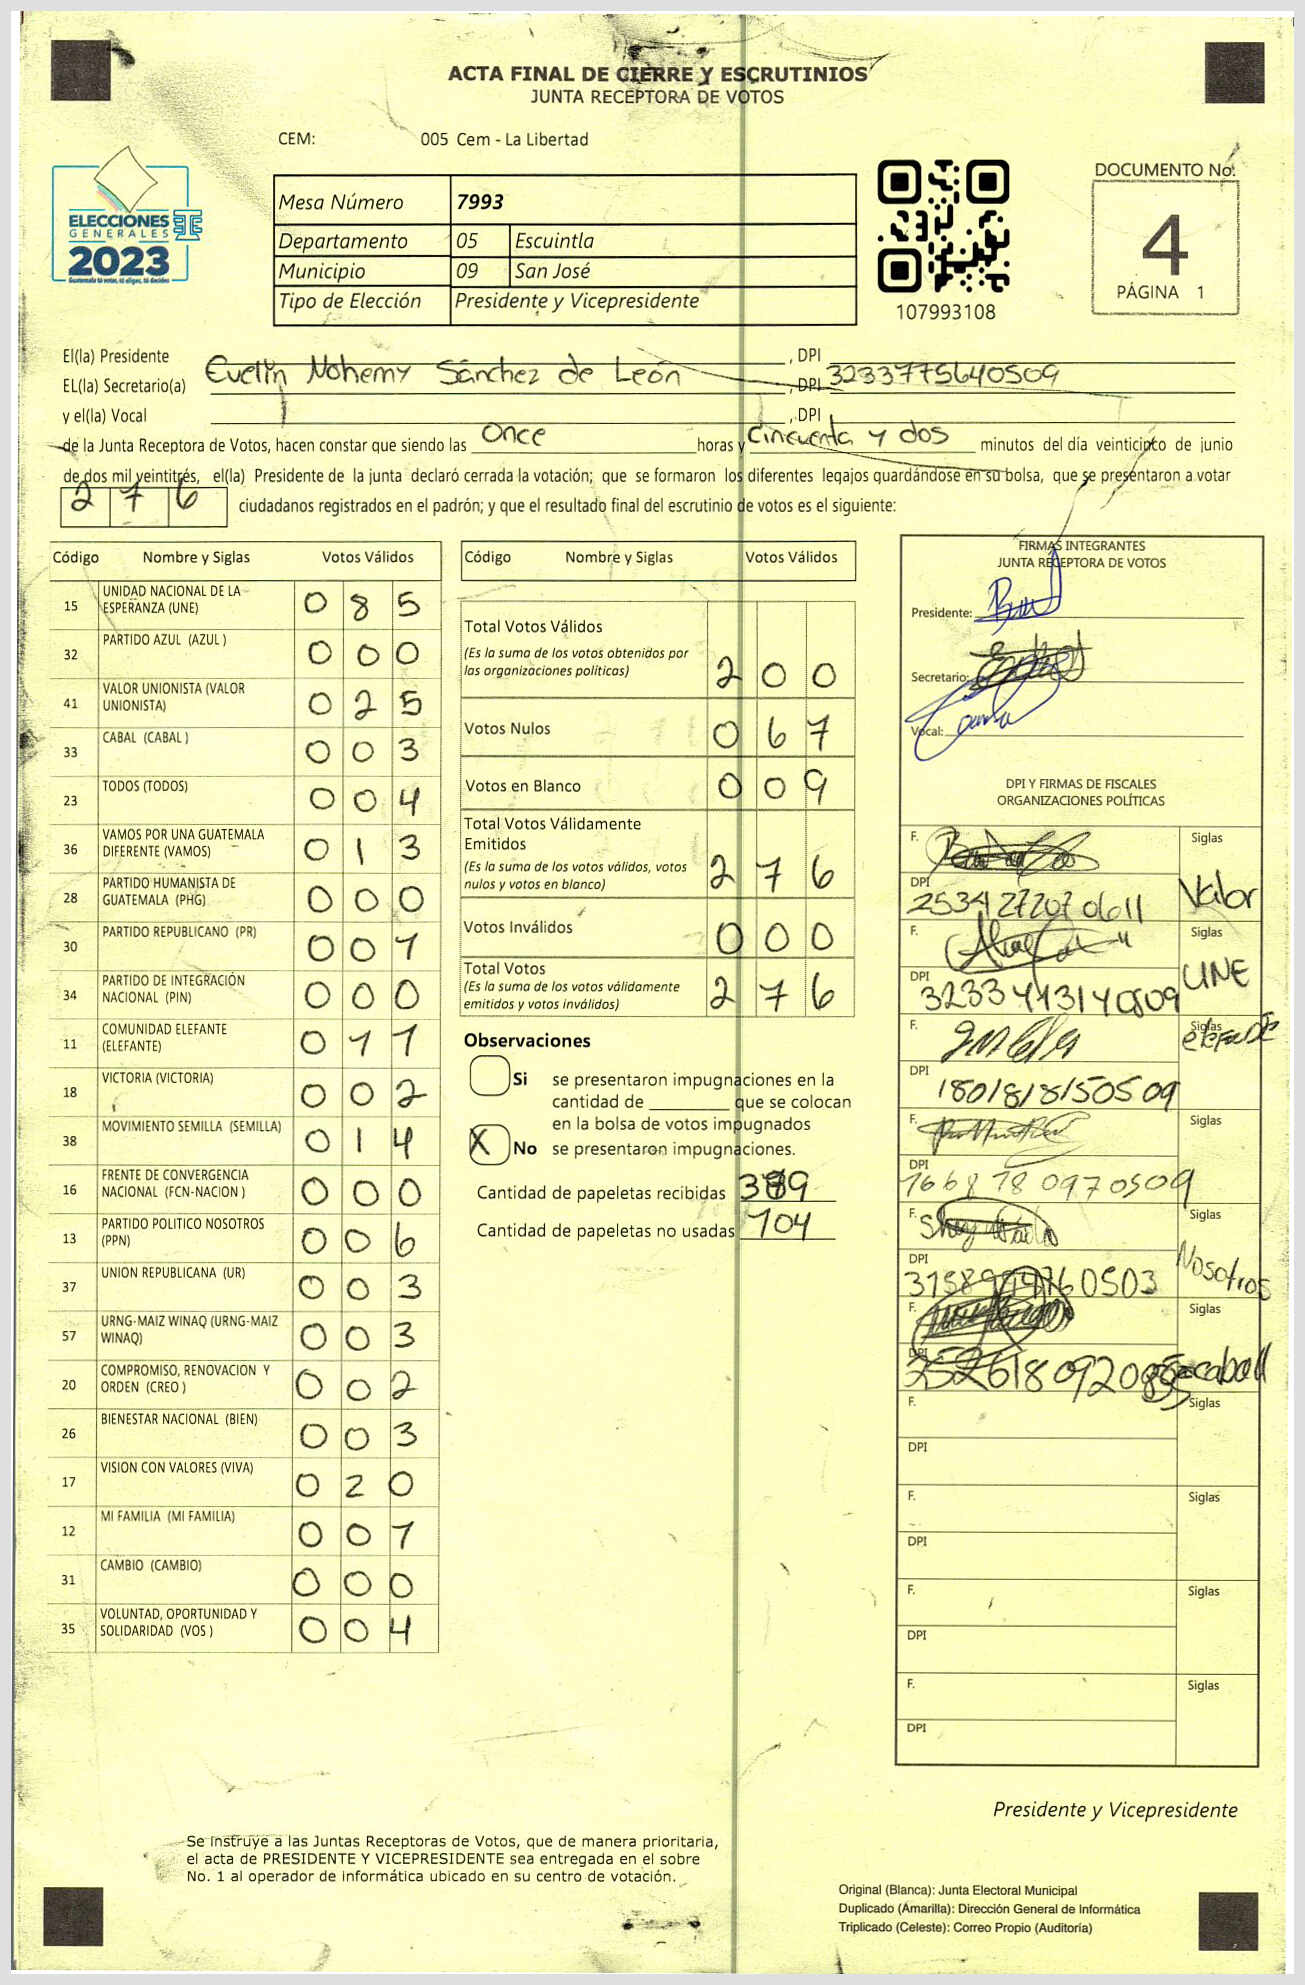 ACTA FINAL DE CIERRE Y ESCRUTINIOS
JUNTA RECEPTORA DE VOTOS
CEM: 005 Cem - La Libertad
ELECCIONES
GENERALES
2023
Guatemala tú votas, tú eliges, tú decides
Mesa Número 7993
Departamento 05 Escuintla
Municipio 09 San José
Tipo de Elección Presidente y Vicepresidente
107993108
DOCUMENTO No.
4
PÁGINA 1
El(la) Presidente , DPI
EL(la) Secretario(a) Evelin Nohemy Sánchez de León , DPI 3233775640509
y el(la) Vocal , DPI
de la Junta Receptora de Votos, hacen constar que siendo las Once horas y cincuenta y dos minutos del día veinticinco de junio
de dos mil veintitrés, el(la) Presidente de la junta declaró cerrada la votación; que se formaron los diferentes legajos guardándose en su bolsa, que se presentaron a votar
276 ciudadanos registrados en el padrón; y que el resultado final del escrutinio de votos es el siguiente:
Código Nombre y Siglas Votos Válidos
15 UNIDAD NACIONAL DE LA ESPERANZA (UNE) 0 8 5
32 PARTIDO AZUL (AZUL ) 0 0 0
41 VALOR UNIONISTA (VALOR UNIONISTA) 0 2 5
33 CABAL (CABAL ) 0 0 3
23 TODOS (TODOS) 0 0 4
36 VAMOS POR UNA GUATEMALA DIFERENTE (VAMOS) 0 1 3
28 PARTIDO HUMANISTA DE GUATEMALA (PHG) 0 0 0
30 PARTIDO REPUBLICANO (PR) 0 0 1
34 PARTIDO DE INTEGRACIÓN NACIONAL (PIN) 0 0 0
11 COMUNIDAD ELEFANTE (ELEFANTE) 0 1 1
18 VICTORIA (VICTORIA) 0 0 2
38 MOVIMIENTO SEMILLA (SEMILLA) 0 1 4
16 FRENTE DE CONVERGENCIA NACIONAL (FCN-NACION ) 0 0 0
13 PARTIDO POLITICO NOSOTROS (PPN) 0 0 6
37 UNION REPUBLICANA (UR) 0 0 3
57 URNG-MAIZ WINAQ (URNG-MAIZ WINAQ) 0 0 3
20 COMPROMISO, RENOVACION Y ORDEN (CREO ) 0 0 2
26 BIENESTAR NACIONAL (BIEN) 0 0 3
17 VISION CON VALORES (VIVA) 0 2 0
12 MI FAMILIA (MI FAMILIA) 0 0 1
31 CAMBIO (CAMBIO) 0 0 0
35 VOLUNTAD, OPORTUNIDAD Y SOLIDARIDAD (VOS ) 0 0 4
Código Nombre y Siglas Votos Válidos
Total Votos Válidos
(Es la suma de los votos obtenidos por las organizaciones políticas) 2 0 0
Votos Nulos 0 6 7
Votos en Blanco 0 0 9
Total Votos Válidamente Emitidos
(Es la suma de los votos válidos, votos nulos y votos en blanco) 2 7 6
Votos Inválidos 0 0 0
Total Votos
(Es la suma de los votos válidamente emitidos y votos inválidos) 2 7 6
Observaciones
Si se presentaron impugnaciones en la
cantidad de ________ que se colocan
en la bolsa de votos impugnados
X No se presentaron impugnaciones.
Cantidad de papeletas recibidas
Cantidad de papeletas no usadas 104
FIRMAS INTEGRANTES
JUNTA RECEPTORA DE VOTOS
Presidente:
Secretario:
Vocal:
DPI Y FIRMAS DE FISCALES
ORGANIZACIONES POLÍTICAS
F. Siglas
DPI 2534272070611 Valor
F. Siglas
DPI UNE
F. Siglas
DPI 1801818150509 elefante
F. Siglas
DPI 1668180970509
F. Siglas
DPI Nosotros
F. Siglas
DPI
F. Siglas
DPI
F. Siglas
DPI
F. Siglas
DPI
F. Siglas
DPI
Presidente y Vicepresidente
Se instruye a las Juntas Receptoras de Votos, que de manera prioritaria,
el acta de PRESIDENTE Y VICEPRESIDENTE sea entregada en el sobre
No. 1 al operador de informática ubicado en su centro de votación.
Original (Blanca): Junta Electoral Municipal
Duplicado (Amarilla): Dirección General de Informática
Triplicado (Celeste): Correo Propio (Auditoría)